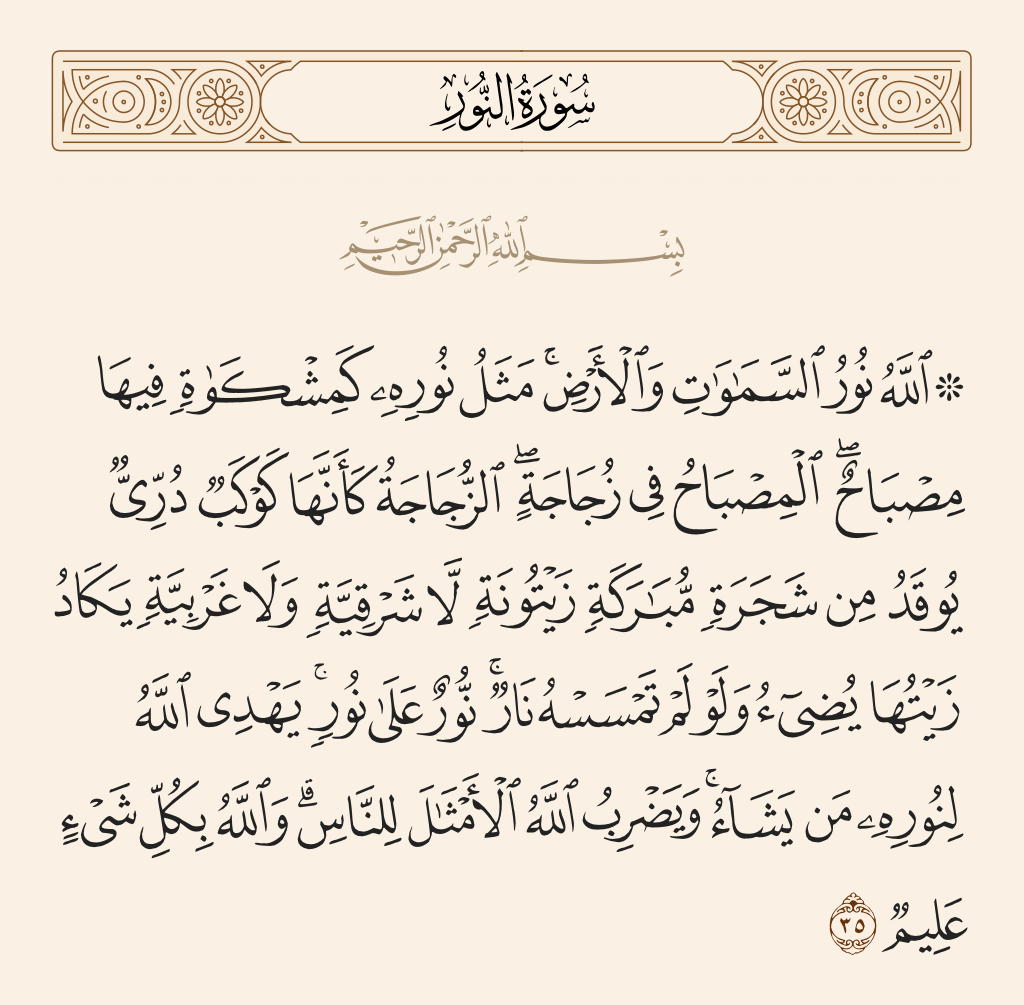 سُورَةُ النُّورِ
بِسْمِ ٱللَّهِ ٱلرَّحْمَٰنِ ٱلرَّحِيمِ
۞ ٱللَّهُ نُورُ ٱلسَّمَٰوَٰتِ وَٱلْأَرْضِۚ مَثَلُ نُورِهِۦ كَمِشْكَوٰةٍ فِيهَا
مِصْبَاحٌۖ ٱلْمِصْبَاحُ فِى زُجَاجَةٍۖ ٱلزُّجَاجَةُ كَأَنَّهَا كَوْكَبٌ دُرِّىٌّ
يُوقَدُ مِن شَجَرَةٍ مُّبَٰرَكَةٍ زَيْتُونَةٍ لَّا شَرْقِيَّةٍ وَلَا غَرْبِيَّةٍ يَكَادُ
زَيْتُهَا يُضِىٓءُ وَلَوْ لَمْ تَمْسَسْهُ نَارٌۚ نُّورٌ عَلَىٰ نُورٍۗ يَهْدِى ٱللَّهُ
لِنُورِهِۦ مَن يَشَآءُۚ وَيَضْرِبُ ٱللَّهُ ٱلْأَمْثَٰلَ لِلنَّاسِۗ وَٱللَّهُ بِكُلِّ شَىْءٍ
عَلِيمٌ ٣٥